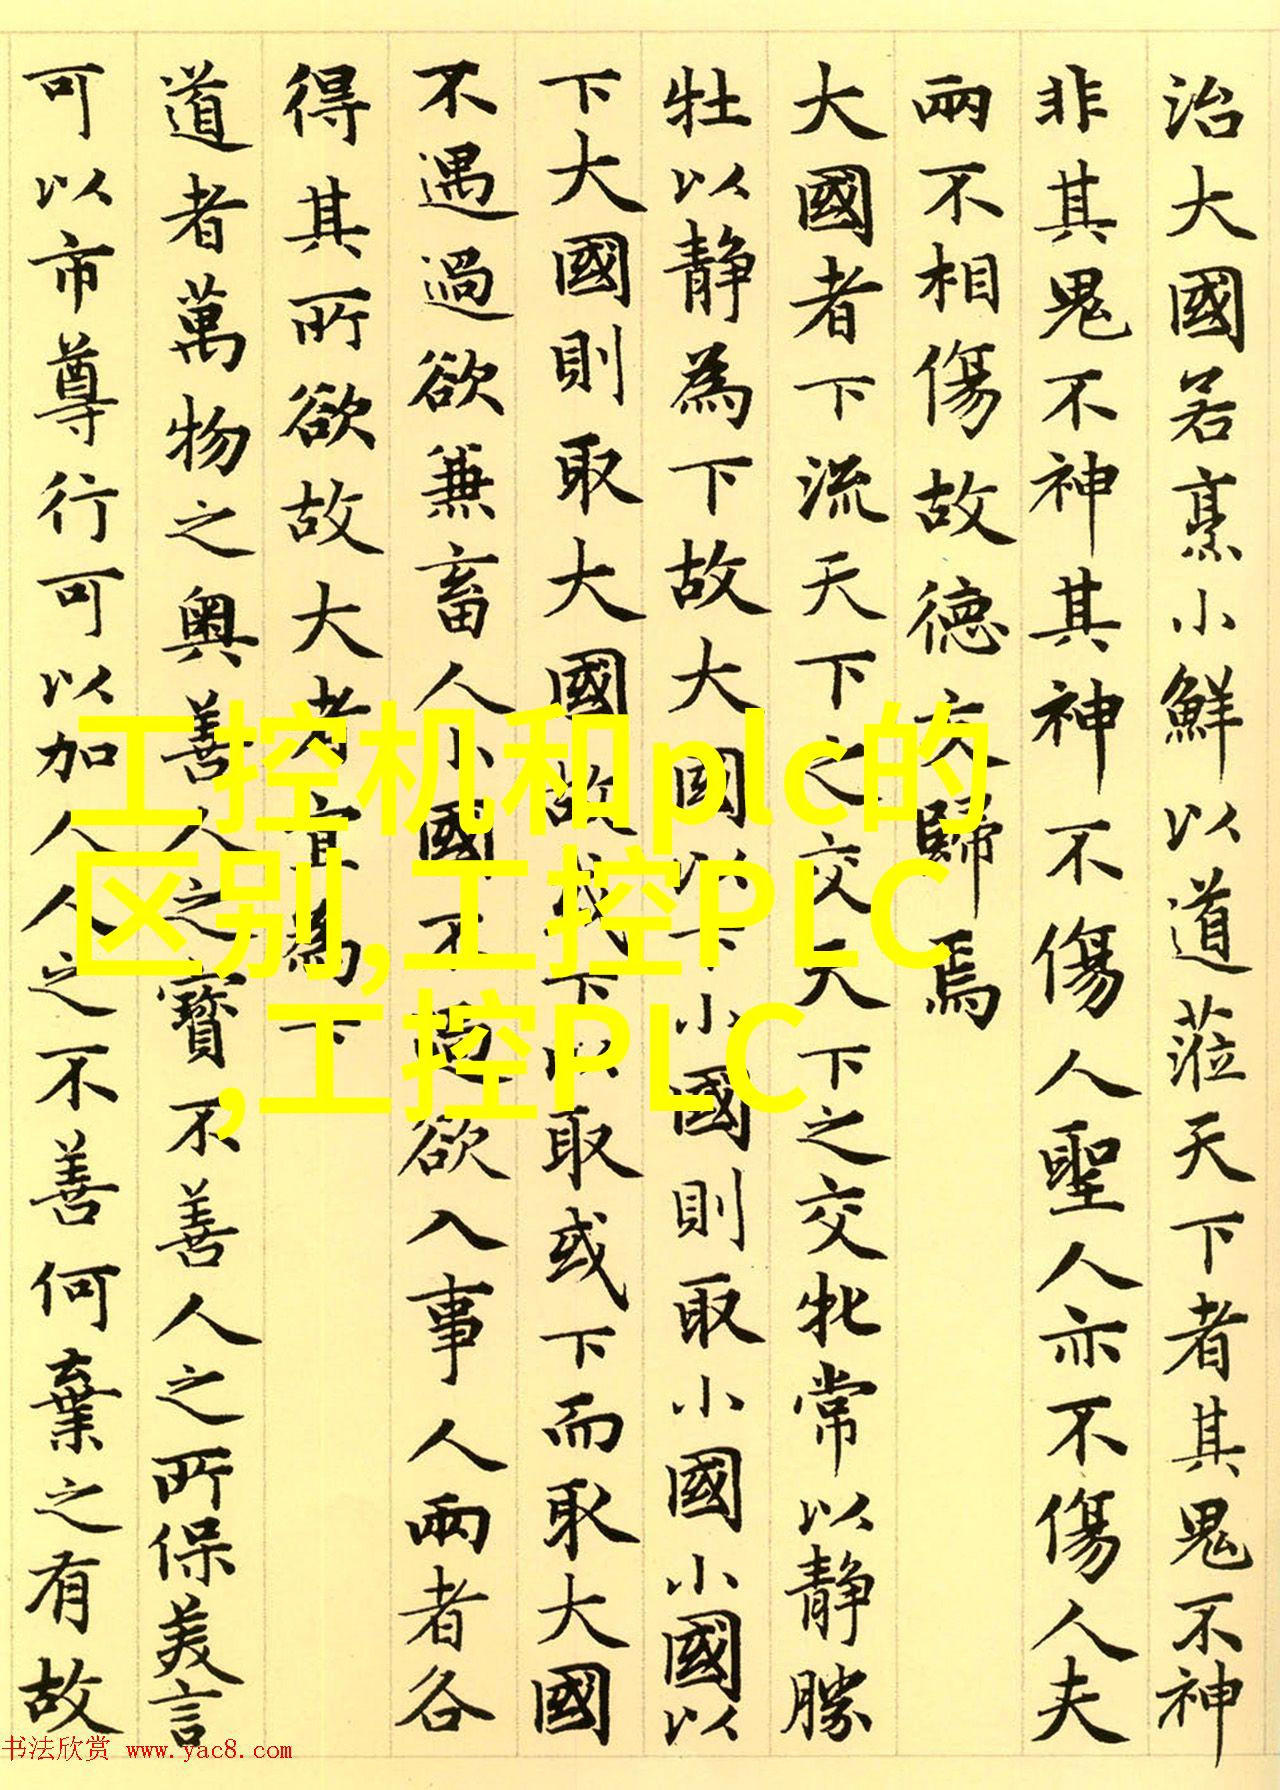 治大國若烹小鮮以道蒞天下者其鬼不神
非其鬼不神其神不傷人聖人亦不傷人夫
兩不相傷故德交歸焉
大國者下流天下之交天下之交牝常以靜勝
牡以靜為下故大國以下小國則取小國小國以
下大國則取大國故或下以取或下而取大國
不遇過欲兼畜人小國不過欲入事人兩者各
得其所欲故大者宜為下
道者萬物之奧善人之寶不善人之所保美言
可以市尊行可以加人人之不善何棄之有故
工控机和plc的
区别,工控PLC
,工控PLC
书法欣赏 www.yac8.com